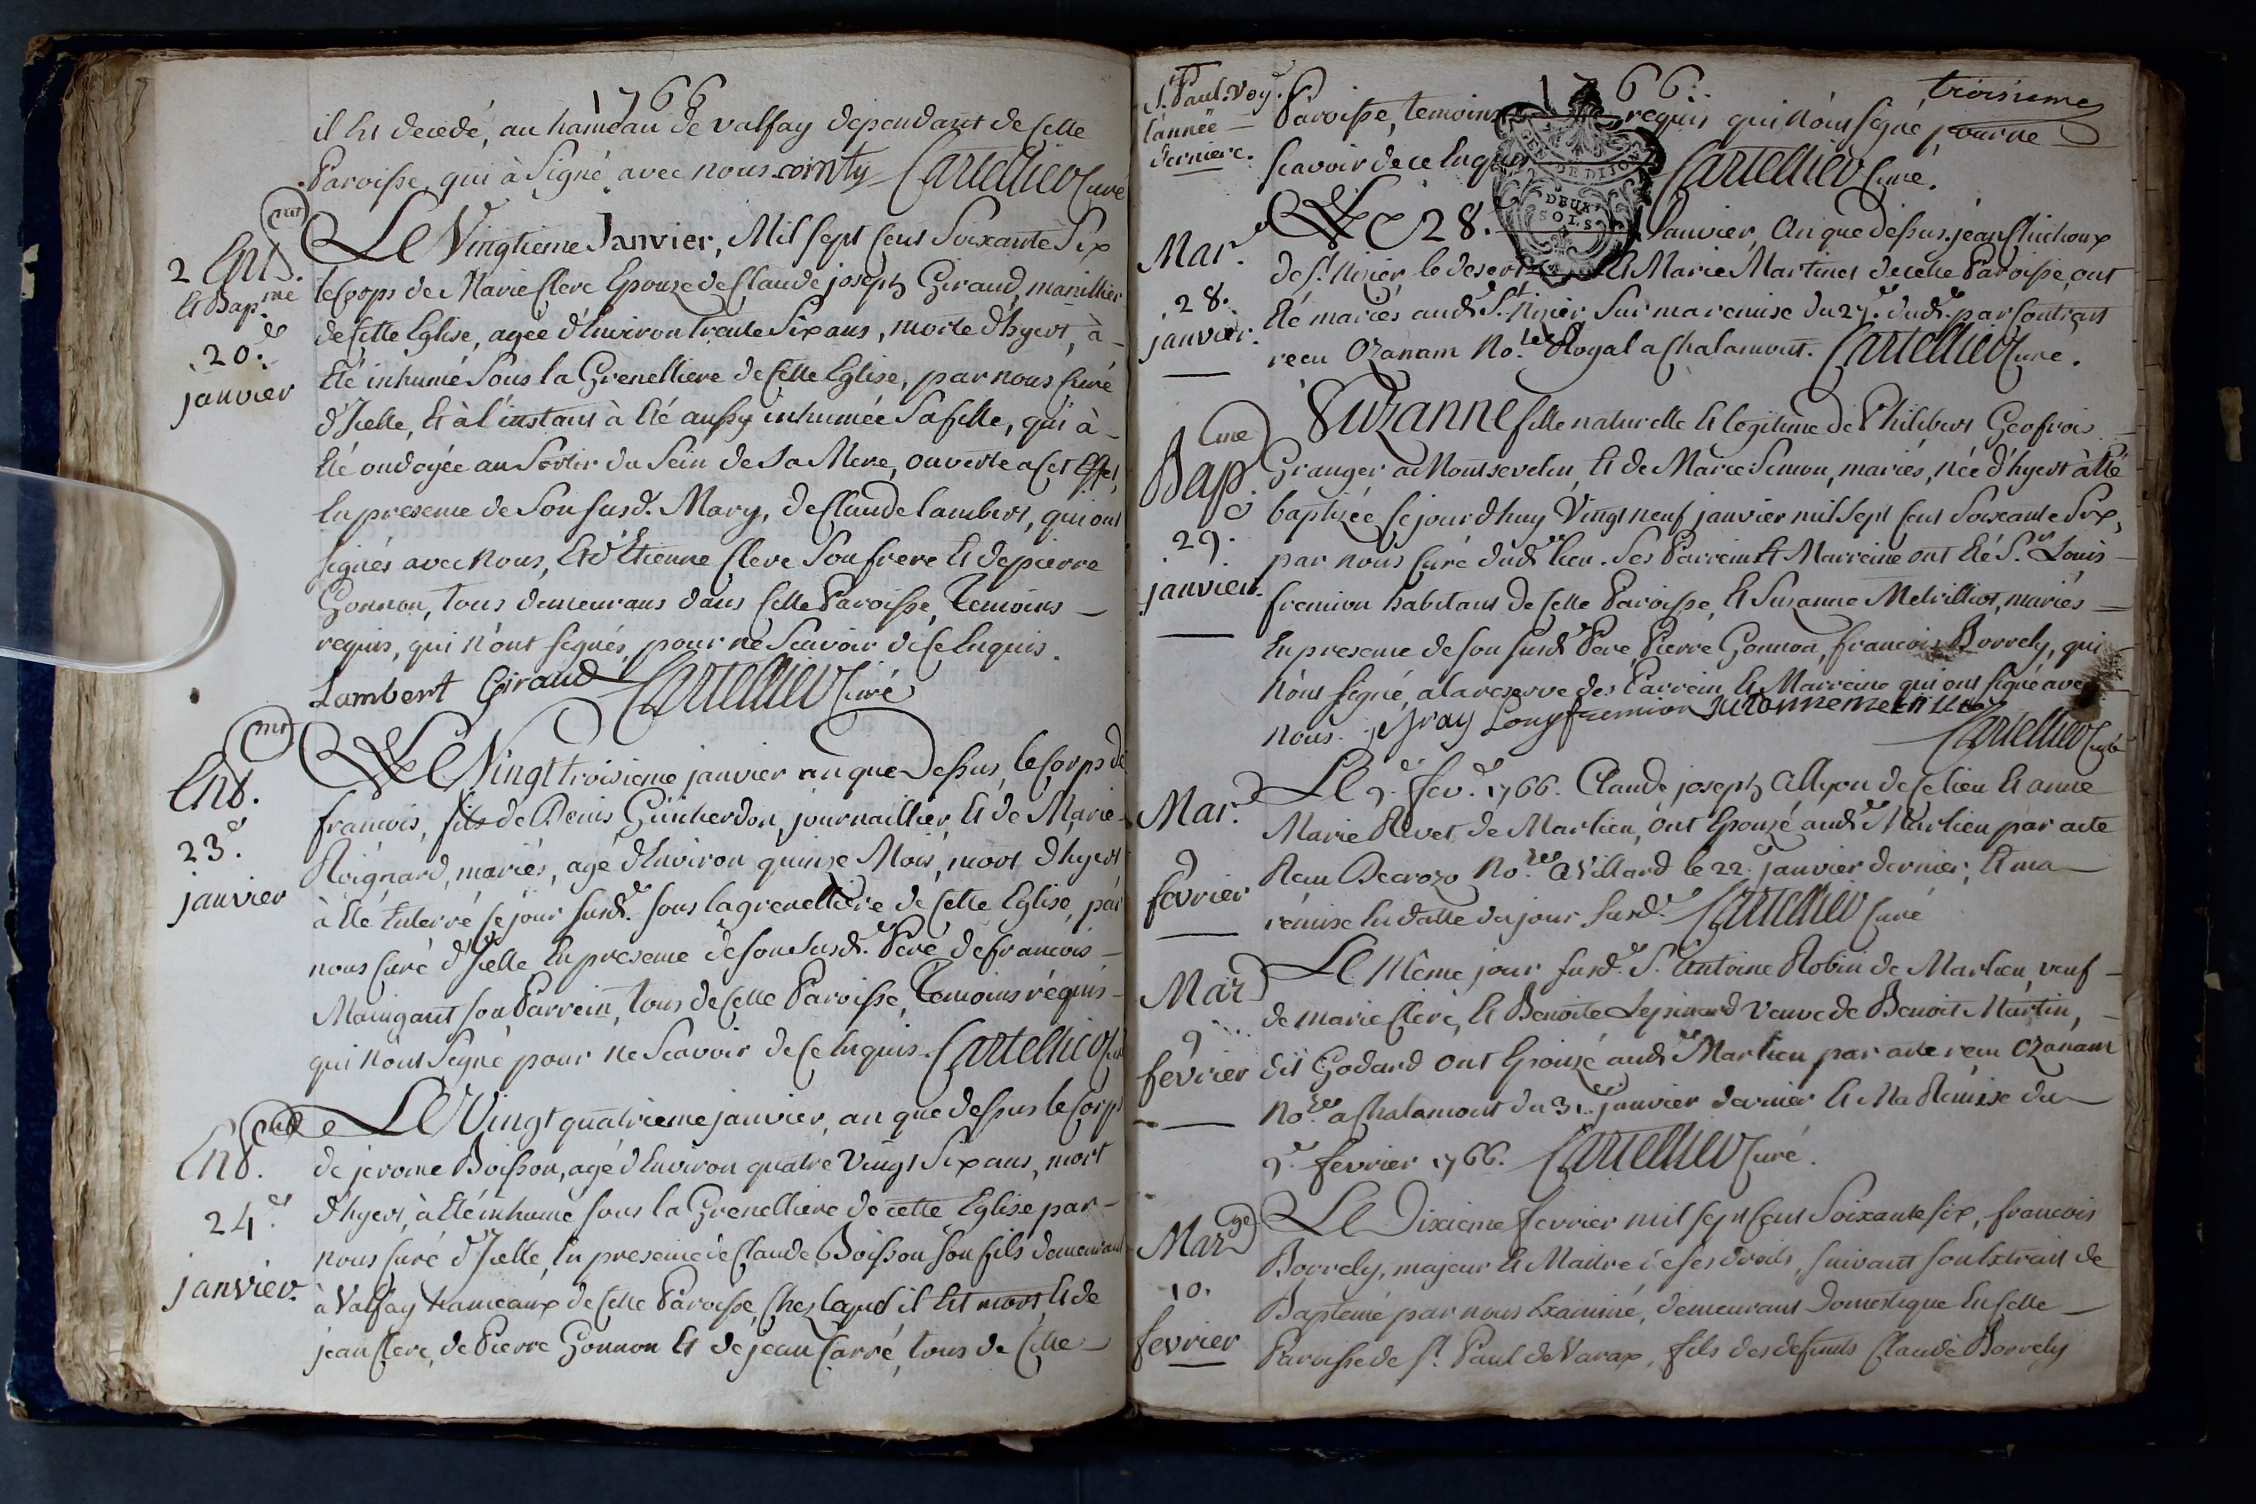 1766
il Est decedé, au hameau de valfay dependant de Cette
Paroisse, qui à Signé avec nous. cointy Cartellier Curé
2 Ent.
mt
et Bap.me
20.e
janvier
Le Vingtieme Janvier, Mil sept Cent Soixante Six
le Corps de Marie Clerc Epouze de Claude joseph Giraud, manillier
de Cette Eglise, agée d'Environ trente Six ans, morte d'hyert, à
Eté inhumé Sous la Grenelliere de Cette Eglise, par nous Curé
d'Icelle, Et à l'instant à Eté aussy inhumée Sa fille, qui à
Eté ondoyée au Sortir du Sein de Sa Mere, ouverte a Cet Effet,
En presence de Son susd. Mary, de Claude lambert, qui ont
signés avec Nous, Et d'Etienne Clerc Son frere Et de pierre
Gonnon, tous demeurans dans Cette Paroisse, temoins
requis, qui n'ont signés, pour ne Scavoir de ce Enquis.
Lambert Giraud Cartellier Curé
Ent.
mt
23.e
janvier
Le Vingt troisieme janvier an que Dessus, le Corps de
francois, fils de Denis Guicherdon, journaillier, Et de Marie
Roignard, mariés, agé d'Environ quinze Mois, mort d'hyert
à Eté Enterré ce jour susd. sous la grenelliere de Cette Eglise, par
nous Curé d'Icelle En presence de son susd. Pere de francois
Maingant son Parrein, tous de Cette Paroisse, temoins réquis
qui n'ont Signé pour ne Scavoir de Ce Enquis. Cartellier Curé
Ent.
24.e
janvier.
Le Vingt quatrieme janvier, an que dessus le Corps
de jerome Boisson, agé d'Environ quatre Vingt Six ans, mort
d'hyert, à Eté inhumé sous la Grenelliere de cette Eglise par
nous Curé d'Icelle, En presence de Claude Boisson son fils demeurant
à Valfay hameaux de Cette Paroisse, Chez lequel il Est mort Et de
jean Clerc, de Pierre Gonnon Et de jean Carré, tous de Cette
1766.
troisieme
St. Paul. Voy.
l'année
derniere.
Paroisse, temoins requis qui n'ont signé, pour ne
scavoir de ce Enquis Cartellier Curé.
GEN. DE DIJON
DEUX
SOLS
Mar.e
28.
janvier.
Le 28. Janvier, An que dessus. jean Chichoux
de St. Nizier le desert Et Marie Martinet de cette Paroisse, ont
Eté mariés aud. St. Nizier Sur ma remise du 27.e dud. par Contract
recu Ozanam No.re Royal a Chalamont. Cartellier Curé.
Bap.
me
29.e
janvier.
Suzanne fille naturelle Et legitime de Philibert Geofrois
Granger a Montsevelin, Et de Marie Simon, mariés, née d'hyert à Eté
baptizée Ce jourdhuy Vingt neuf janvier mil Sept Cent Soixante Six,
par nous Curé dud. lieu. Ses Parrein Et Marreine ont Eté S.r Louis
fremion habitant de Cette Paroisse, Et Suzanne Metrilliot, mariés
En presence de son susd. Pere, Pierre Gonnon, francois Borrely, qui
n'ont signé, a la reserve des Parrein Et Marreine qui ont signé avec
nous. Louy fremion
Cartellier Curé
Mar.e
9
fevrier
Le 9.e fev.r 1766. Claude joseph Allyon de Ce lieu Et anne
Marie Rivet de Marlieu, ont Epouzé aud. Marlieu par acte
Recu Decrozo No.re a Villard le 22. janvier dernier, Et ma
rémise En datte du jour susd. Cartellier Curé
Mar.
9
fevrier
Le Même jour susd. S.r Antoine Robin de Marlieu, veuf
de marie Clerc, Et Benoite Lepinard Veuve de Benoit Martin,
dit Godard ont Epouzé aud. Marlieu par acte recu Ozanam
No.re a Chalamont du 31. janvier dernier Et Ma Rémise du
9.e fevrier 1766. Cartellier Curé.
Mar.ge
10.
fevrier
Le Dixieme fevrier mil sept Cent Soixante six, francois
Borrely, majeur Et Maitre de ses droits, suivant son Extrait de
Bapteme par nous Examiné, demeurant Domestique En Cette
Paroisse de St. Paul de Varax, fils des defunts Claude Borrely